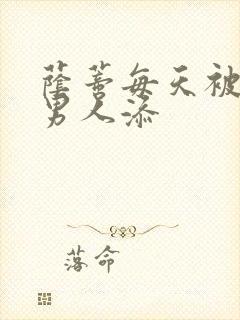 蔭蒂每天被
男人添
落命